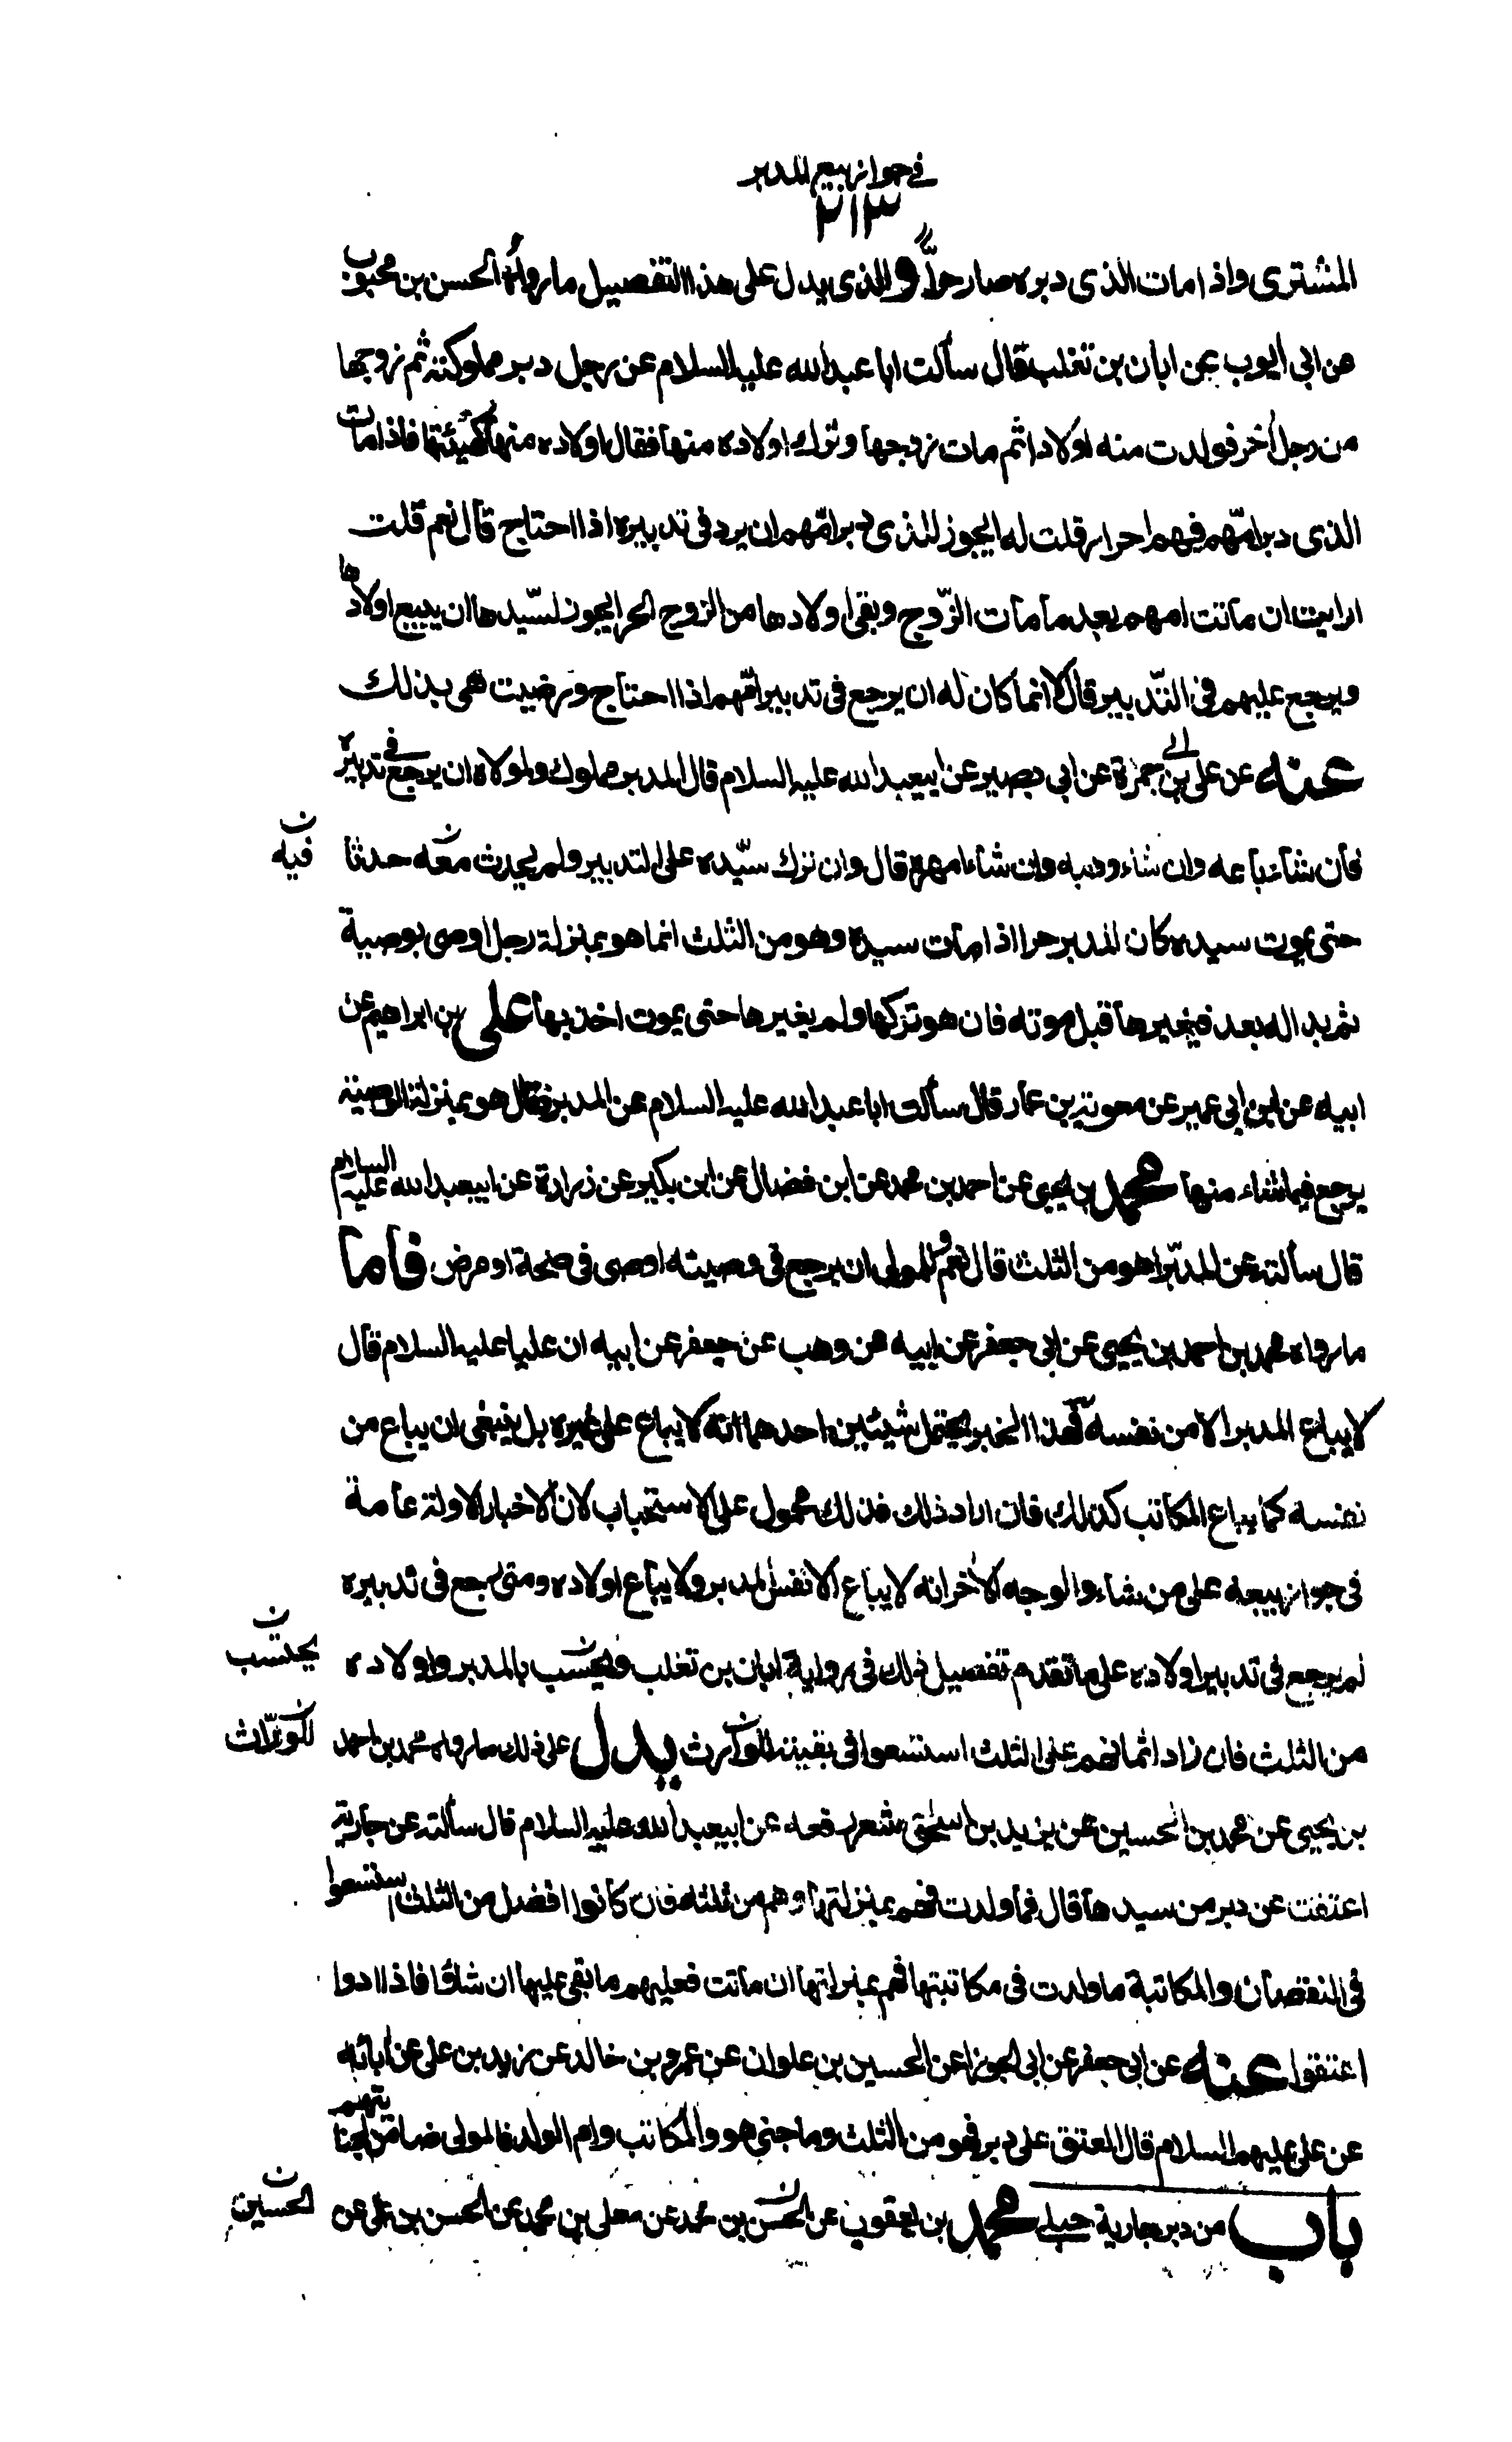 في جواز بيع المدبر
٢١٣
المشترى واذا مات الذى دبره صار حراً والذى يدل على هذا التفصيل ما رواه الحسن بن محبوب
عن ابى ايوب عن ابان بن تغلب قال سألت ابا عبد الله عليه السلام عن رجل دبر مملوكته ثم زوجها
من رجل آخر فولدت منه اولادا ثم مات زوجها وترك اولاده منها فقال اولاده منها كهيئتها فاذا مات
الذى دبر امّهم فهم احرار قلت له ايجوز للذى دبر امّهم ان يرد فى تدبيره اذا احتاج قال نعم قلت
ارايت ان ماتت امهم بعد ما مات الزّوج وبقى اولادها من الزوج الحر ايجوز لسيّدها ان يبيع اولادها
ويرجع عليهم فى التّدبير قال لا انما كان له ان يرجع فى تدبير امّهم اذا احتاج ورضيت هى بذلك
عنه عن على بن ابى حمزة عن ابى بصير عن ابيعبد الله عليه السلام قال المدبر مملوك ولمولاه ان يرجع فى تدبيره
فان شاء باعه وان شاء وهبه وان شاء امهره قال وان ترك سيّده على التدبير ولم يحدث معه حدثا
فيه ن
حتى يموت سيده كان المدبر حرا اذا مات سيده وهو من الثلث انما هو بمنزلة رجل اوصى بوصية
ثم بدا له بعد فيغيرها قبل موته فان هو تركها ولم يغيرها حتى يموت اخذ بها على بن ابراهيم عن
ابيه عن ابن ابى عمير عن معوية بن عمار قال سألت ابا عبد الله عليه السلام عن المدبر فقال هو بمنزلة الوصية
يرجع فيما شاء منها محمد بن يحيى عن احمد بن محمد عن ابن فضال عن ابن بكير عن زرارة عن ابيعبد الله عليه السلام
قال سألته عن المدبّر اهو من الثلث قال نعم وللمولى ان يرجع فى وصيته اوصى فى صحة او مرض فاما
ما رواه محمد بن احمد بن يحيى عن ابى جعفر عن ابيه عن وهب عن جعفر عن ابيه ان عليا عليه السلام قال
لا يباع المدبر الا من نفسه فهذا الخبر يحتمل شيئين احدهما انه لا يباع على غيره بل ينبغى ان يباع من
نفسه كما يباع المكاتب كذلك فان اراد ذلك فذلك محمول على الاستحباب لان الاخبار الاولة عامة
فى جواز بيعه على من شاء والوجه الآخر انه لا يباع الا نفس المدبر ولا يباع اولاده ومتى رجع فى تدبيره
لم يرجع فى تدبير اولاده على ما تقدم تفصيل ذلك فى رواية ابان بن تغلب ويحسب بالمدبر واولاده
يحتسب ن
من الثلث فان زاد اثمانهم على الثلث استسعوا فى بقيته للوارث يدل على ذلك ما رواه محمد بن احمد
للورّاث ن
بن يحيى عن محمد بن الحسين عن يزيد بن اسحق شعر رفعه عن ابيعبد الله عليه السلام قال سألته عن جارية
اعتقت عن دبر من سيدها قال فما ولدت فهم بمنزلتها وهم من ثلثه فان كانوا افضل من الثلث استسعوا
فى النقصان والمكاتبة ما ولدت فى مكاتبتها فهم بمنزلتها ان ماتت فعليهم ما بقى عليها ان شاؤا فاذا ادوا
اعتقوا عنه عن ابى جعفر عن ابى الجوزا عن الحسين بن علوان عن عمرو بن خالد عن زيد بن على عن آبائه
عن على عليهم السلام قال المعتق على دبر فهو من الثلث وما جنى هو والمكاتب وام الولد فالمولى ضامن لجنايتهم
باب من دبر جارية حبلى محمد بن يعقوب عن الحسن بن محمد عن معلى بن محمد عن الحسن بن على عن
الحسين ن